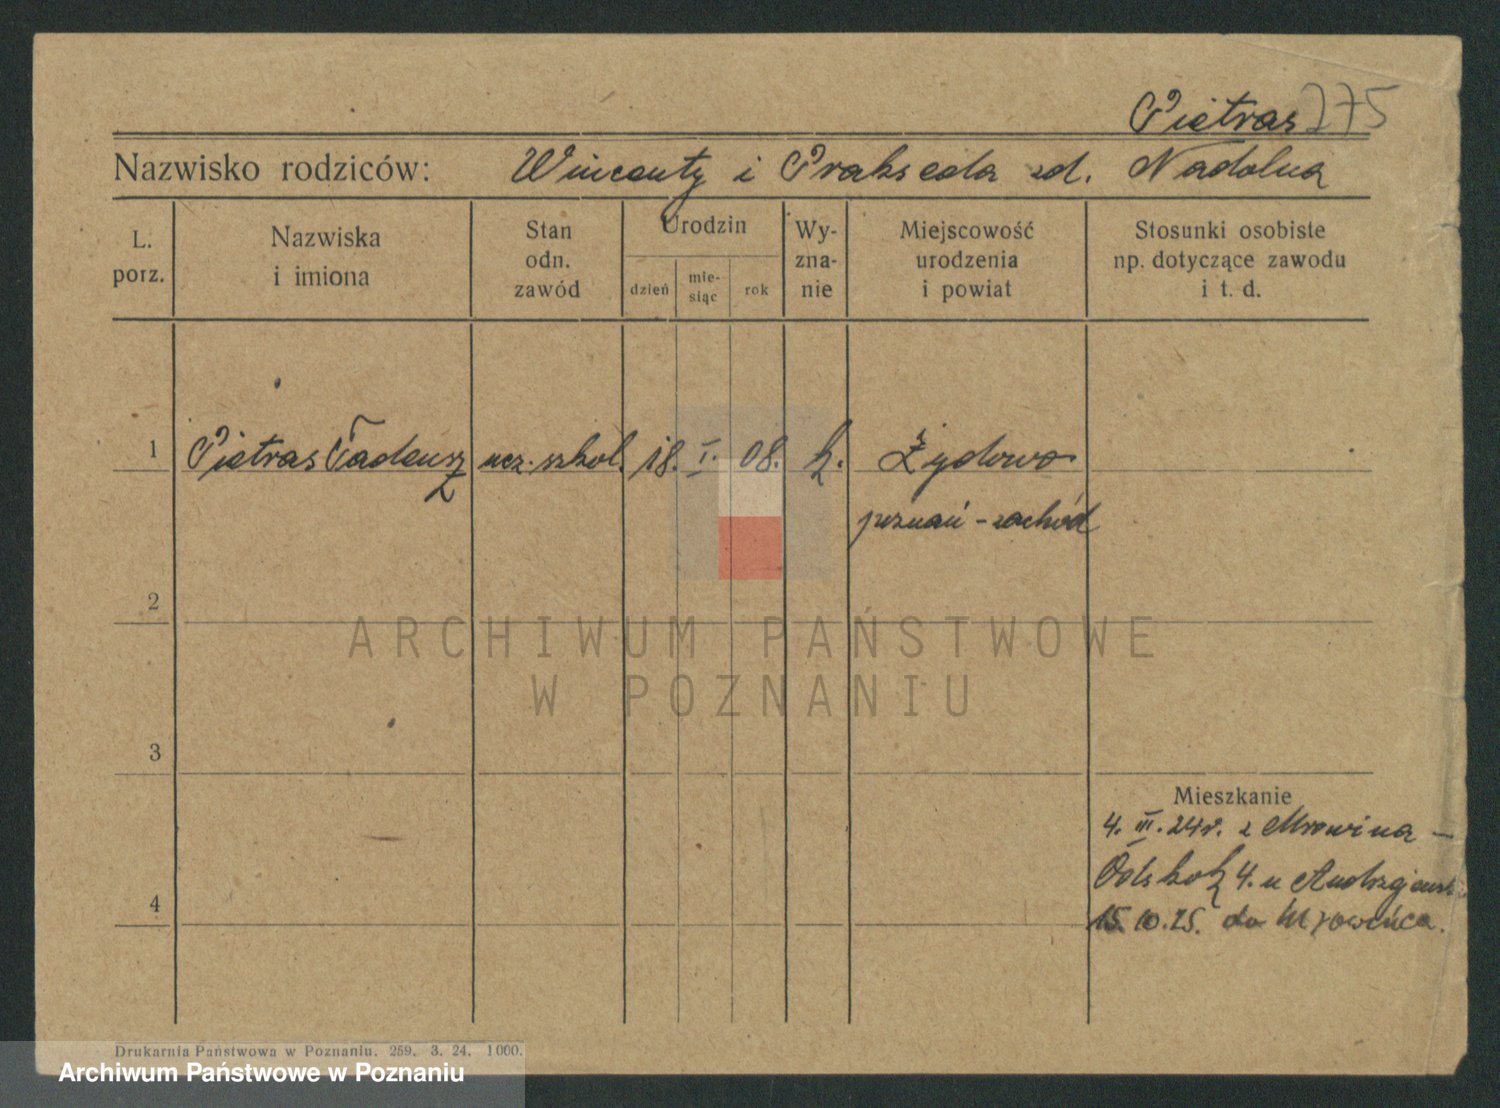 Pietras 275
Nazwisko rodziców: Wincenty i Prakseda zd. Nadolna
L. porz.
Nazwiska i imiona
Stan odn. zawód
Urodzin
dzień
mie-
siąc
rok
Wy-
zna-
nie
Miejscowość urodzenia i powiat
Stosunki osobiste
np. dotyczące zawodu
i t. d.
1 Pietras Tadeusz ucz. szkol. 18. I. 08. k. Żydowo
poznań - zachód
2
ARCHIWUM PAŃSTWOWE
W POZNANIU
3
Mieszkanie
4. III. 24 r. z Mrowina –
4. u
4
15. 10. 25. do
Drukarnia Państwowa w Poznaniu. 259. 3. 24. 1000.
Archiwum Państwowe w Poznaniu